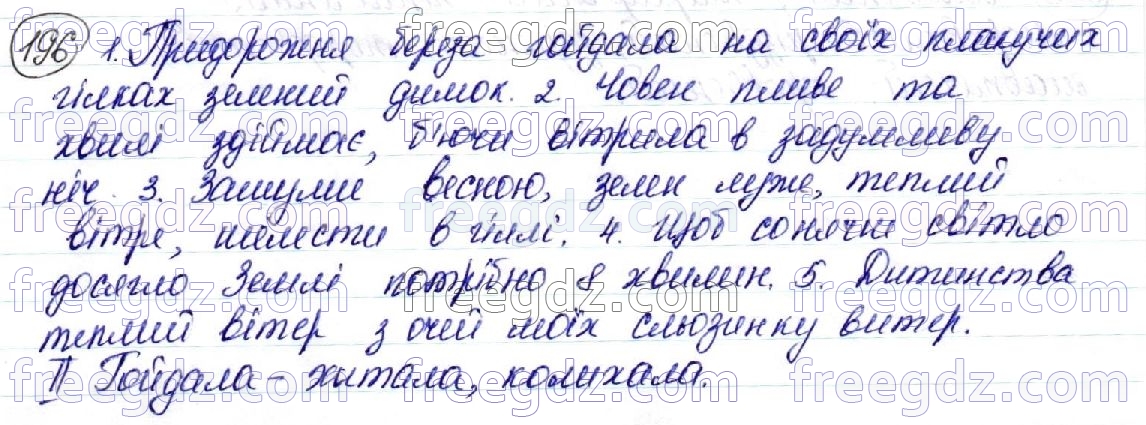 196 1. Придорожня береза гойдала на своїх плакучих
гілках земний димок. 2. Човен пливе та
хвилі здіймає, б'ючи вітрила в задумливу
ніч. 3. Зашуми весною, зелен луже, теплий
вітре, шелести в гіллі. 4. Щоб сонячне світло
досягло Землі потрібно 8 хвилин. 5. Дитинства
теплий вітер з очей моїх сльозинку витер.
II Гойдала – хитала, колихала.
freegdz.com